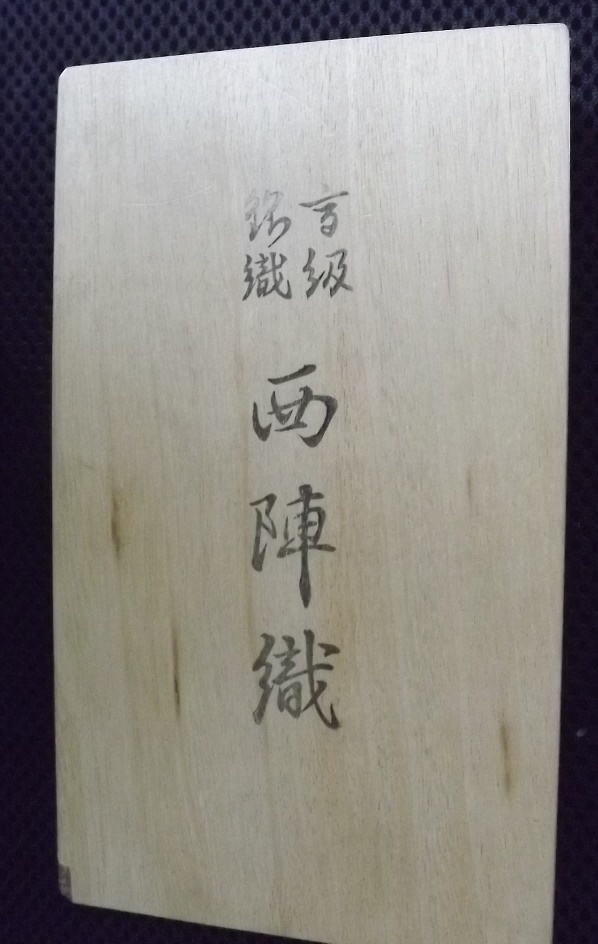 高級
銘織
西陣織